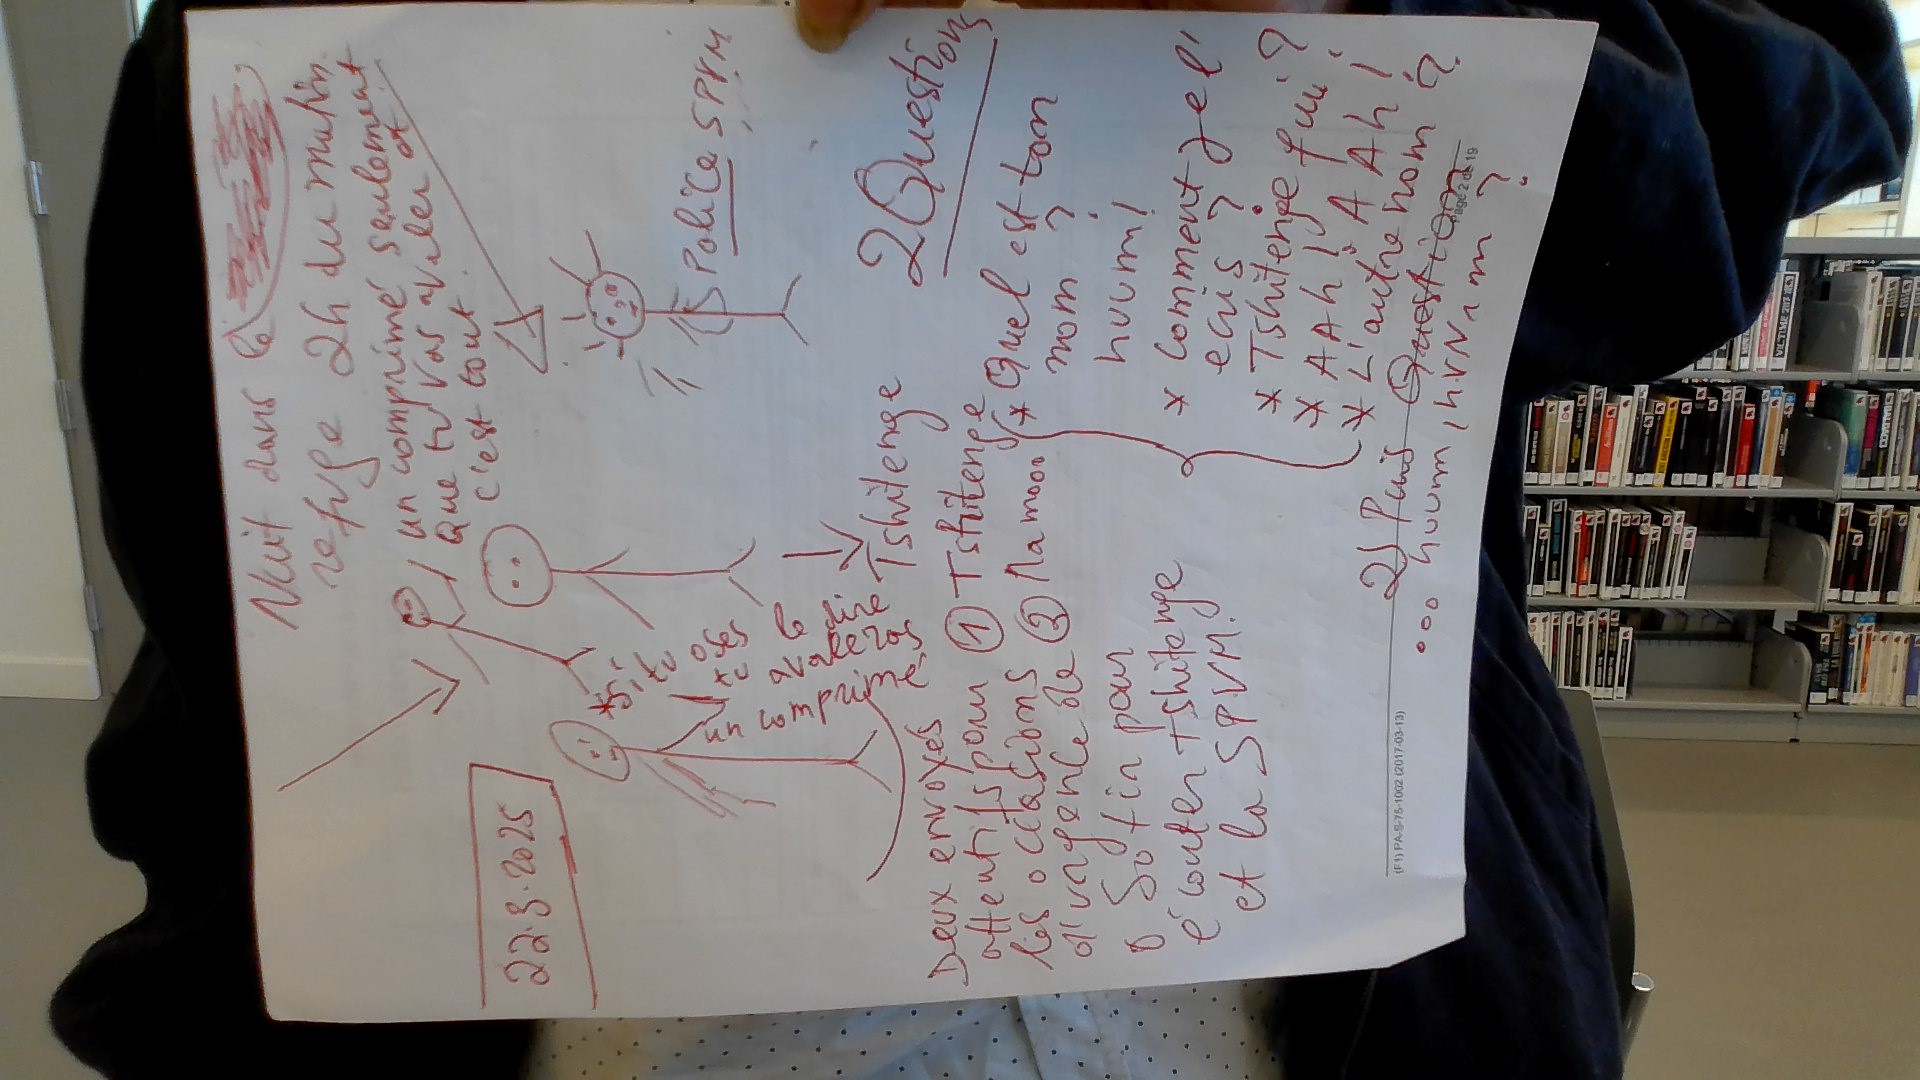 Nuit dans le
refuge 2h du matin.
un comprimé seulement
que tu vas avaler et
c'est tout.
22.3.2025
Police SPVM
*si tu oses
tu le
avaleras
dire
un comprimé
Tshitenge
Deux envoyés
attentifs pour
les occasions
d'urgence de
Sofin pour
écouter Tshitenge
et la SPVM.
① Tshitenge
②
2 Questions
* Quel est ton
nom ?
huum!
* Comment je l'
ecris ?
* Tshitenge fui ?
* AAh ! AAh !
* L'autre nom ?
2) Puis Question
... huum, hum ?
Page 2 de 19
(F1) PA-S-75-1002 (2017-03-13)